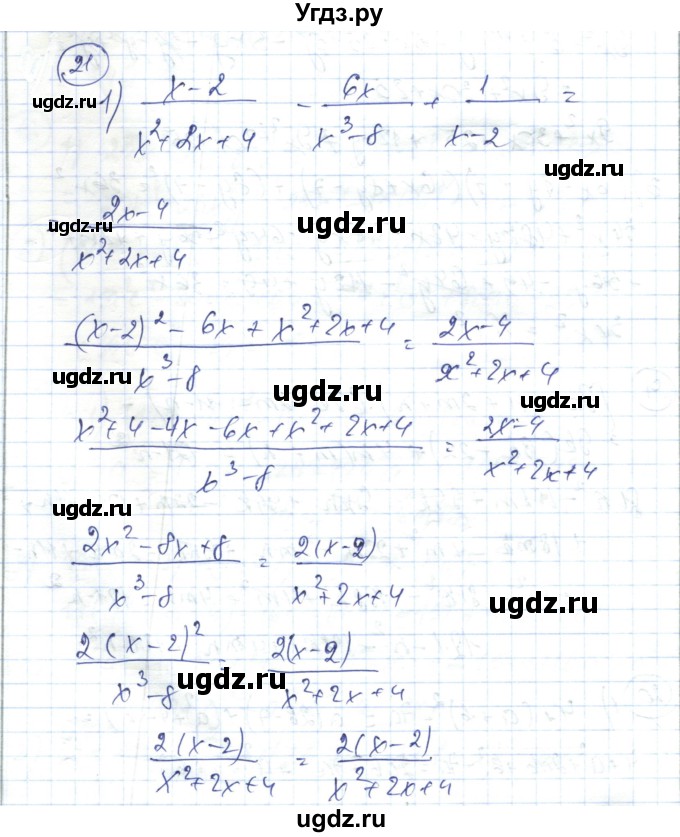 Угдз.ру
21
1) (x-2)/(x²+2x+4) - 6x/(x³-8) + 1/(x-2) =
ugdz.ru
ugdz.ru
= (2x-4)/(x²+2x+4)
ugdz.ru
ugdz.ru
ugdz.ru
((x-2)² - 6x + x²+2x+4)/(x³-8) = (2x-4)/(x²+2x+4)
ugdz.ru
ugdz.ru
ugdz.ru
(x²+4-4x-6x+x²+2x+4)/(x³-8) = (2x-4)/(x²+2x+4)
ugdz.ru
ugdz.ru
(2x²-8x+8)/(x³-8) = 2(x-2)/(x²+2x+4)
ugdz.ru
2(x-2)²/(x³-8) = 2(x-2)/(x²+2x+4)
ugdz.ru
ugdz.ru
2(x-2)/(x²+2x+4) = 2(x-2)/(x²+2x+4)
ugdz.ru